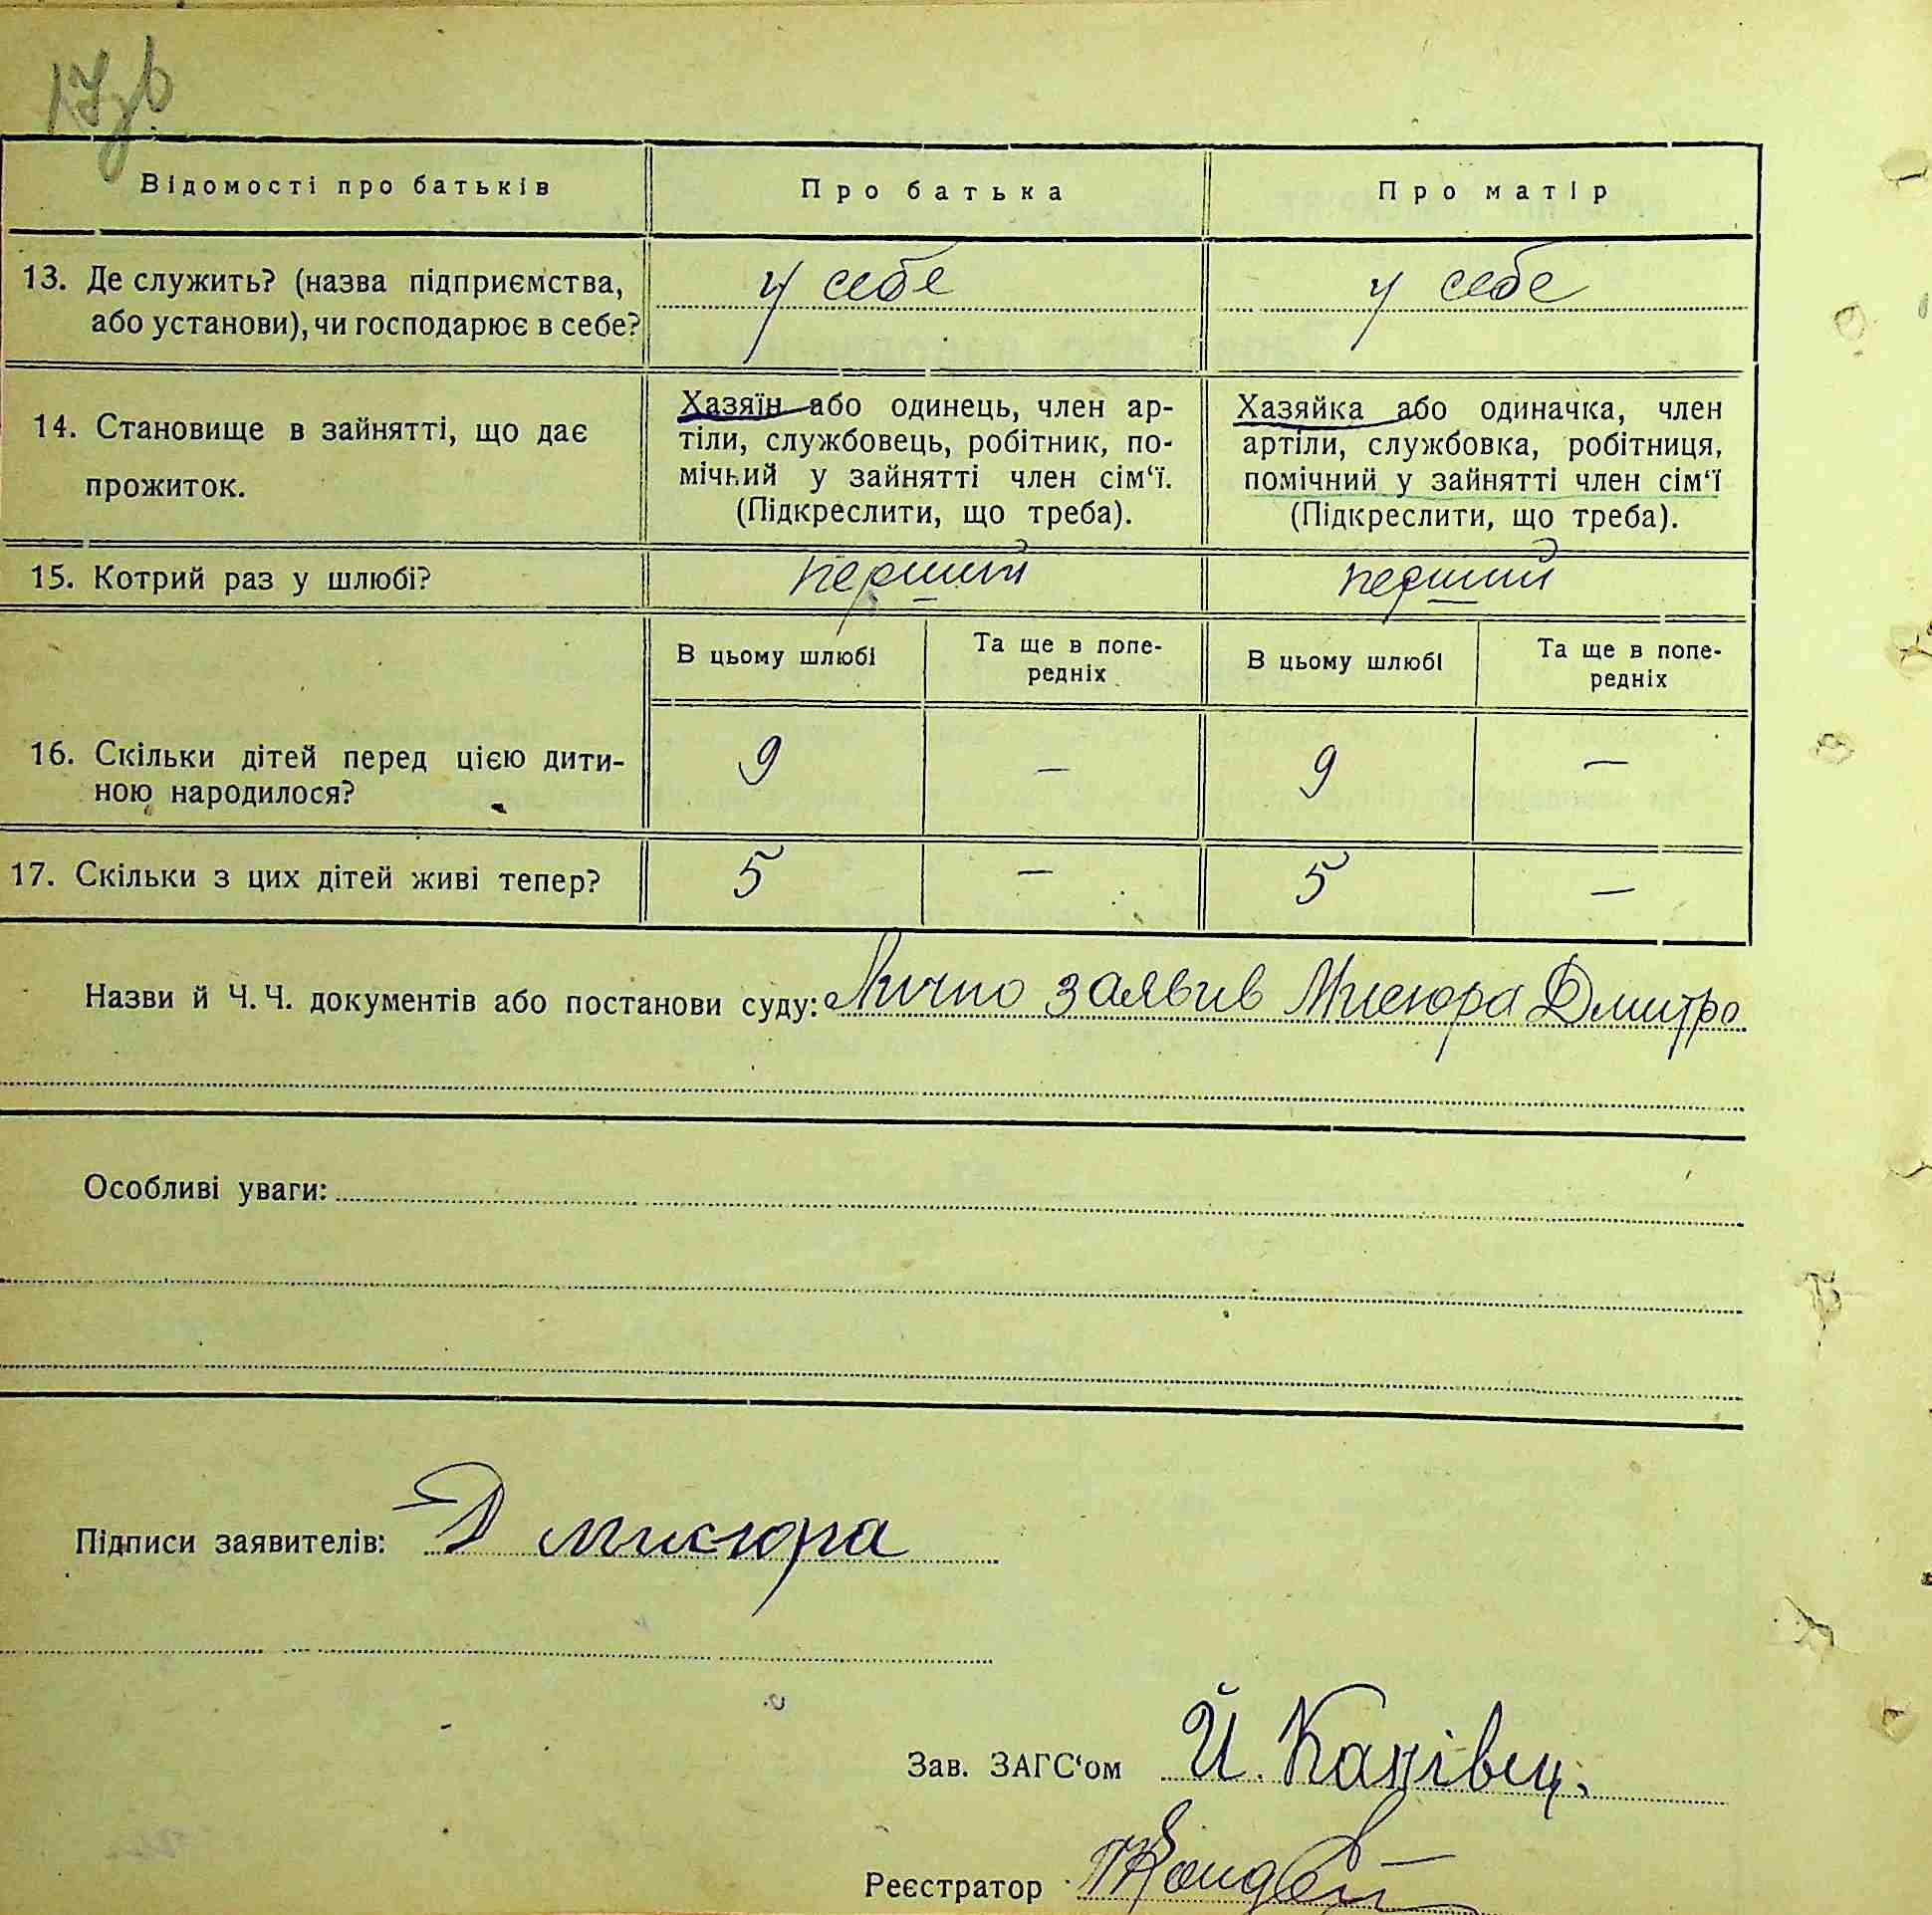 17зв
Відомості про батьків
Про батька
Про матір
13. Де служить? (назва підприємства,
або установи), чи господарює в себе?
у себе
у себе
14. Становище в зайнятті, що дає
прожиток.
Хазяїн або одинець, член ар-
тіли, службовець, робітник, по-
мічний у зайнятті член сім‘ї.
(Підкреслити, що треба).
Хазяйка або одиначка, член
артіли, службовка, робітниця,
помічний у зайнятті член сім‘ї
(Підкреслити, що треба).
15. Котрий раз у шлюбі?
перший
перший
В цьому шлюбі
Та ще в попе-
редніх
В цьому шлюбі
Та ще в попе-
редніх
16. Скільки дітей перед цією дити-
ною народилося?
9
—
9
—
17. Скільки з цих дітей живі тепер?
5
—
5
—
Назви й Ч. Ч. документів або постанови суду: Лично заявив Мисюра Дмитро
Особливі уваги:
Підписи заявителів: Д мисюра
Зав. ЗАГС‘ом Й. Канівец.
Реєстратор